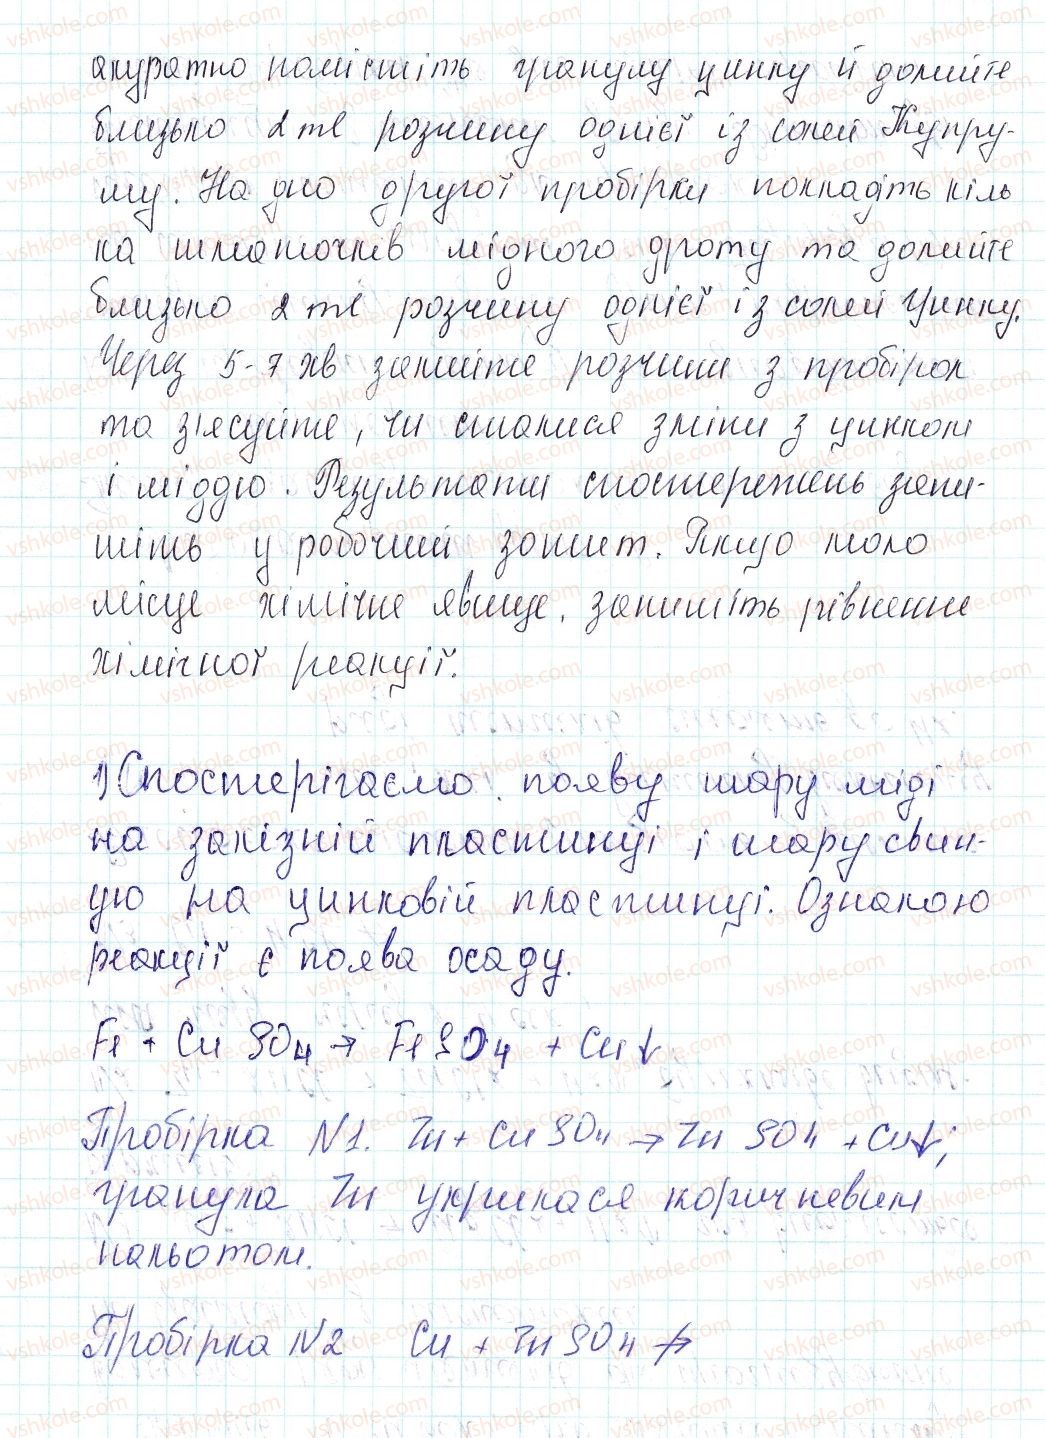 акуратно помістіть гранулу цинку й долийте
близько 2 ml розчину однієї із солей Купру-
му. На дно другої пробірки покладіть кіль
ка шматочків мідного дроту та долийте
близько 2 ml розчину однієї із солей Цинку.
Через 5-7 хв залийте розчини з пробірок
та з'ясуйте, чи сталися зміни з цинком
і міддю. Результати спостережень запи-
шіть у робочий зошит. Якщо мало
місце хімічне явище, запишіть рівнення
хімічної реакції.
1) Спостерігаємо появу шару міді
на залізній пластинці і шару свин-
цю на цинковій пластинці. Ознакою
реакції є поява осаду.
Fe + CuSO4 → FeSO4 + Cu↓
Пробірка N1. Zn + CuSO4 → ZnSO4 + Cu↓;
гранула Zn укрилася коричневим
нальотом.
Пробірка N2 Cu + ZnSO4 ↛